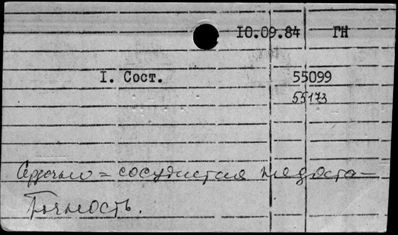 10.09.84 ГН
I. Сост. 55099
55173
Сердечно = сосудистая недоста-
точность.